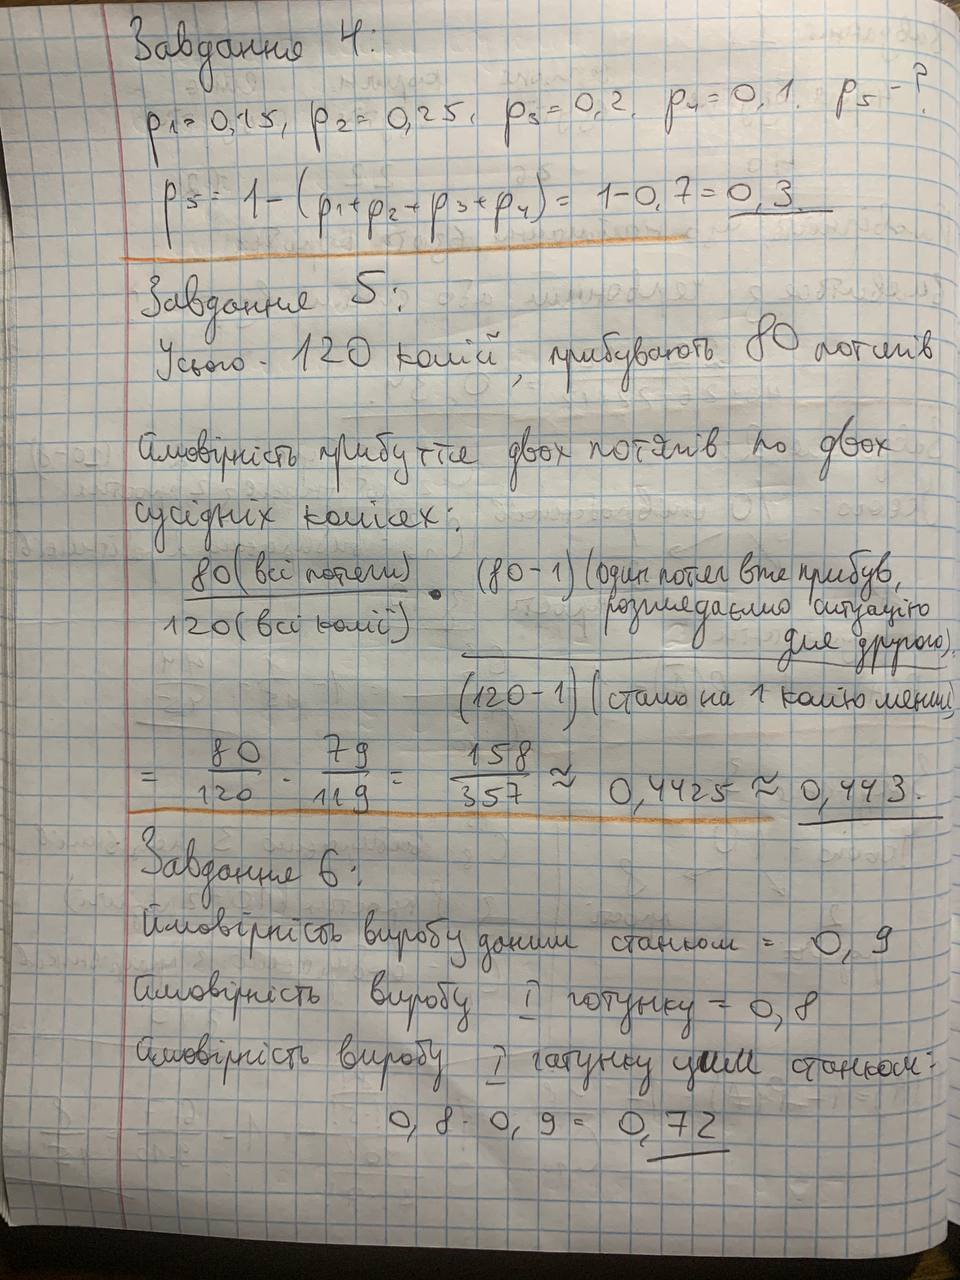 Завдання 4:
p1=0,15, p2=0,25, p3=0,2, p4=0,1, p5-?
p5= 1-(p1+p2+p3+p4)= 1-0,7=0,3.
Завдання 5:
Усього - 120 колій, прибувають 80 потягів
Ймовірність прибуття двох потягів по двох
сусідніх коліях:
80(всі потяги) / 120(всі колії) · (80-1)(один потяг вже прибув, розглядаємо ситуацію для другого) / (120-1)(стало на 1 колію менше)
= 80/120 · 79/119 = 158/357 ≈ 0,4425 ≈ 0,443.
Завдання 6:
Ймовірність виробу даним станком = 0,9
Ймовірність виробу I гатунку = 0,8
Ймовірність виробу I гатунку цим станком:
0,8 · 0,9 = 0,72